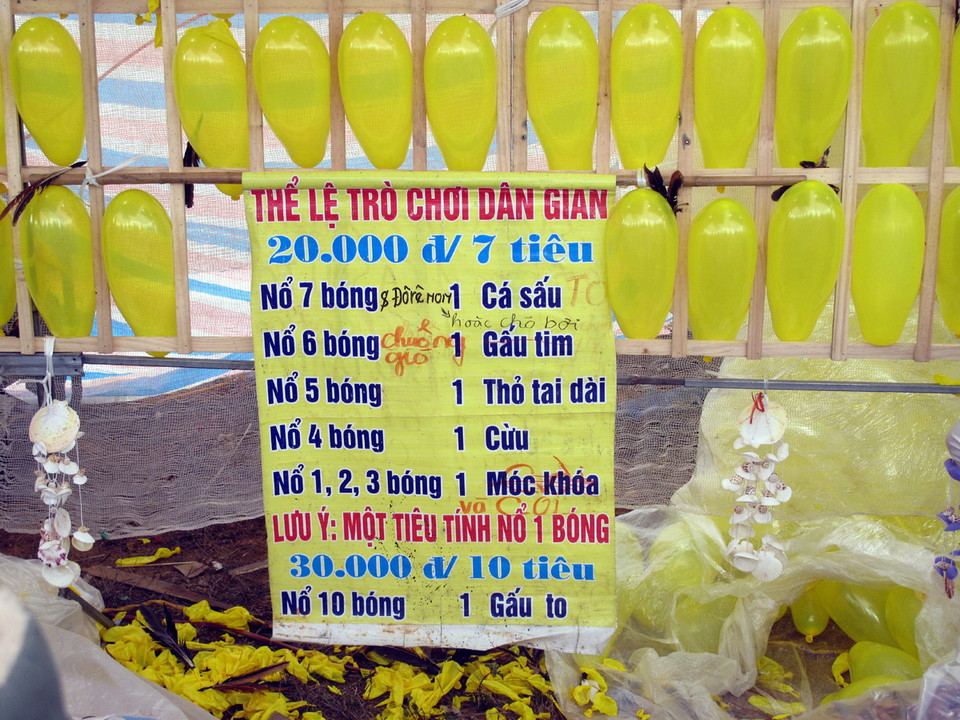 THỂ LỆ TRÒ CHƠI DÂN GIAN
20.000 đ/ 7 tiêu
Nổ 7 bóng & Đôrêmon 1 Cá sấu TO
hoặc chó bơi
Nổ 6 bóng chuông gió 1 Gấu tim
Nổ 5 bóng 1 Thỏ tai dài
Nổ 4 bóng 1 Cừu
Nổ 1, 2, 3 bóng 1 Móc khóa
và
LƯU Ý: MỘT TIÊU TÍNH NỔ 1 BÓNG
30.000 đ/ 10 tiêu
Nổ 10 bóng 1 Gấu to